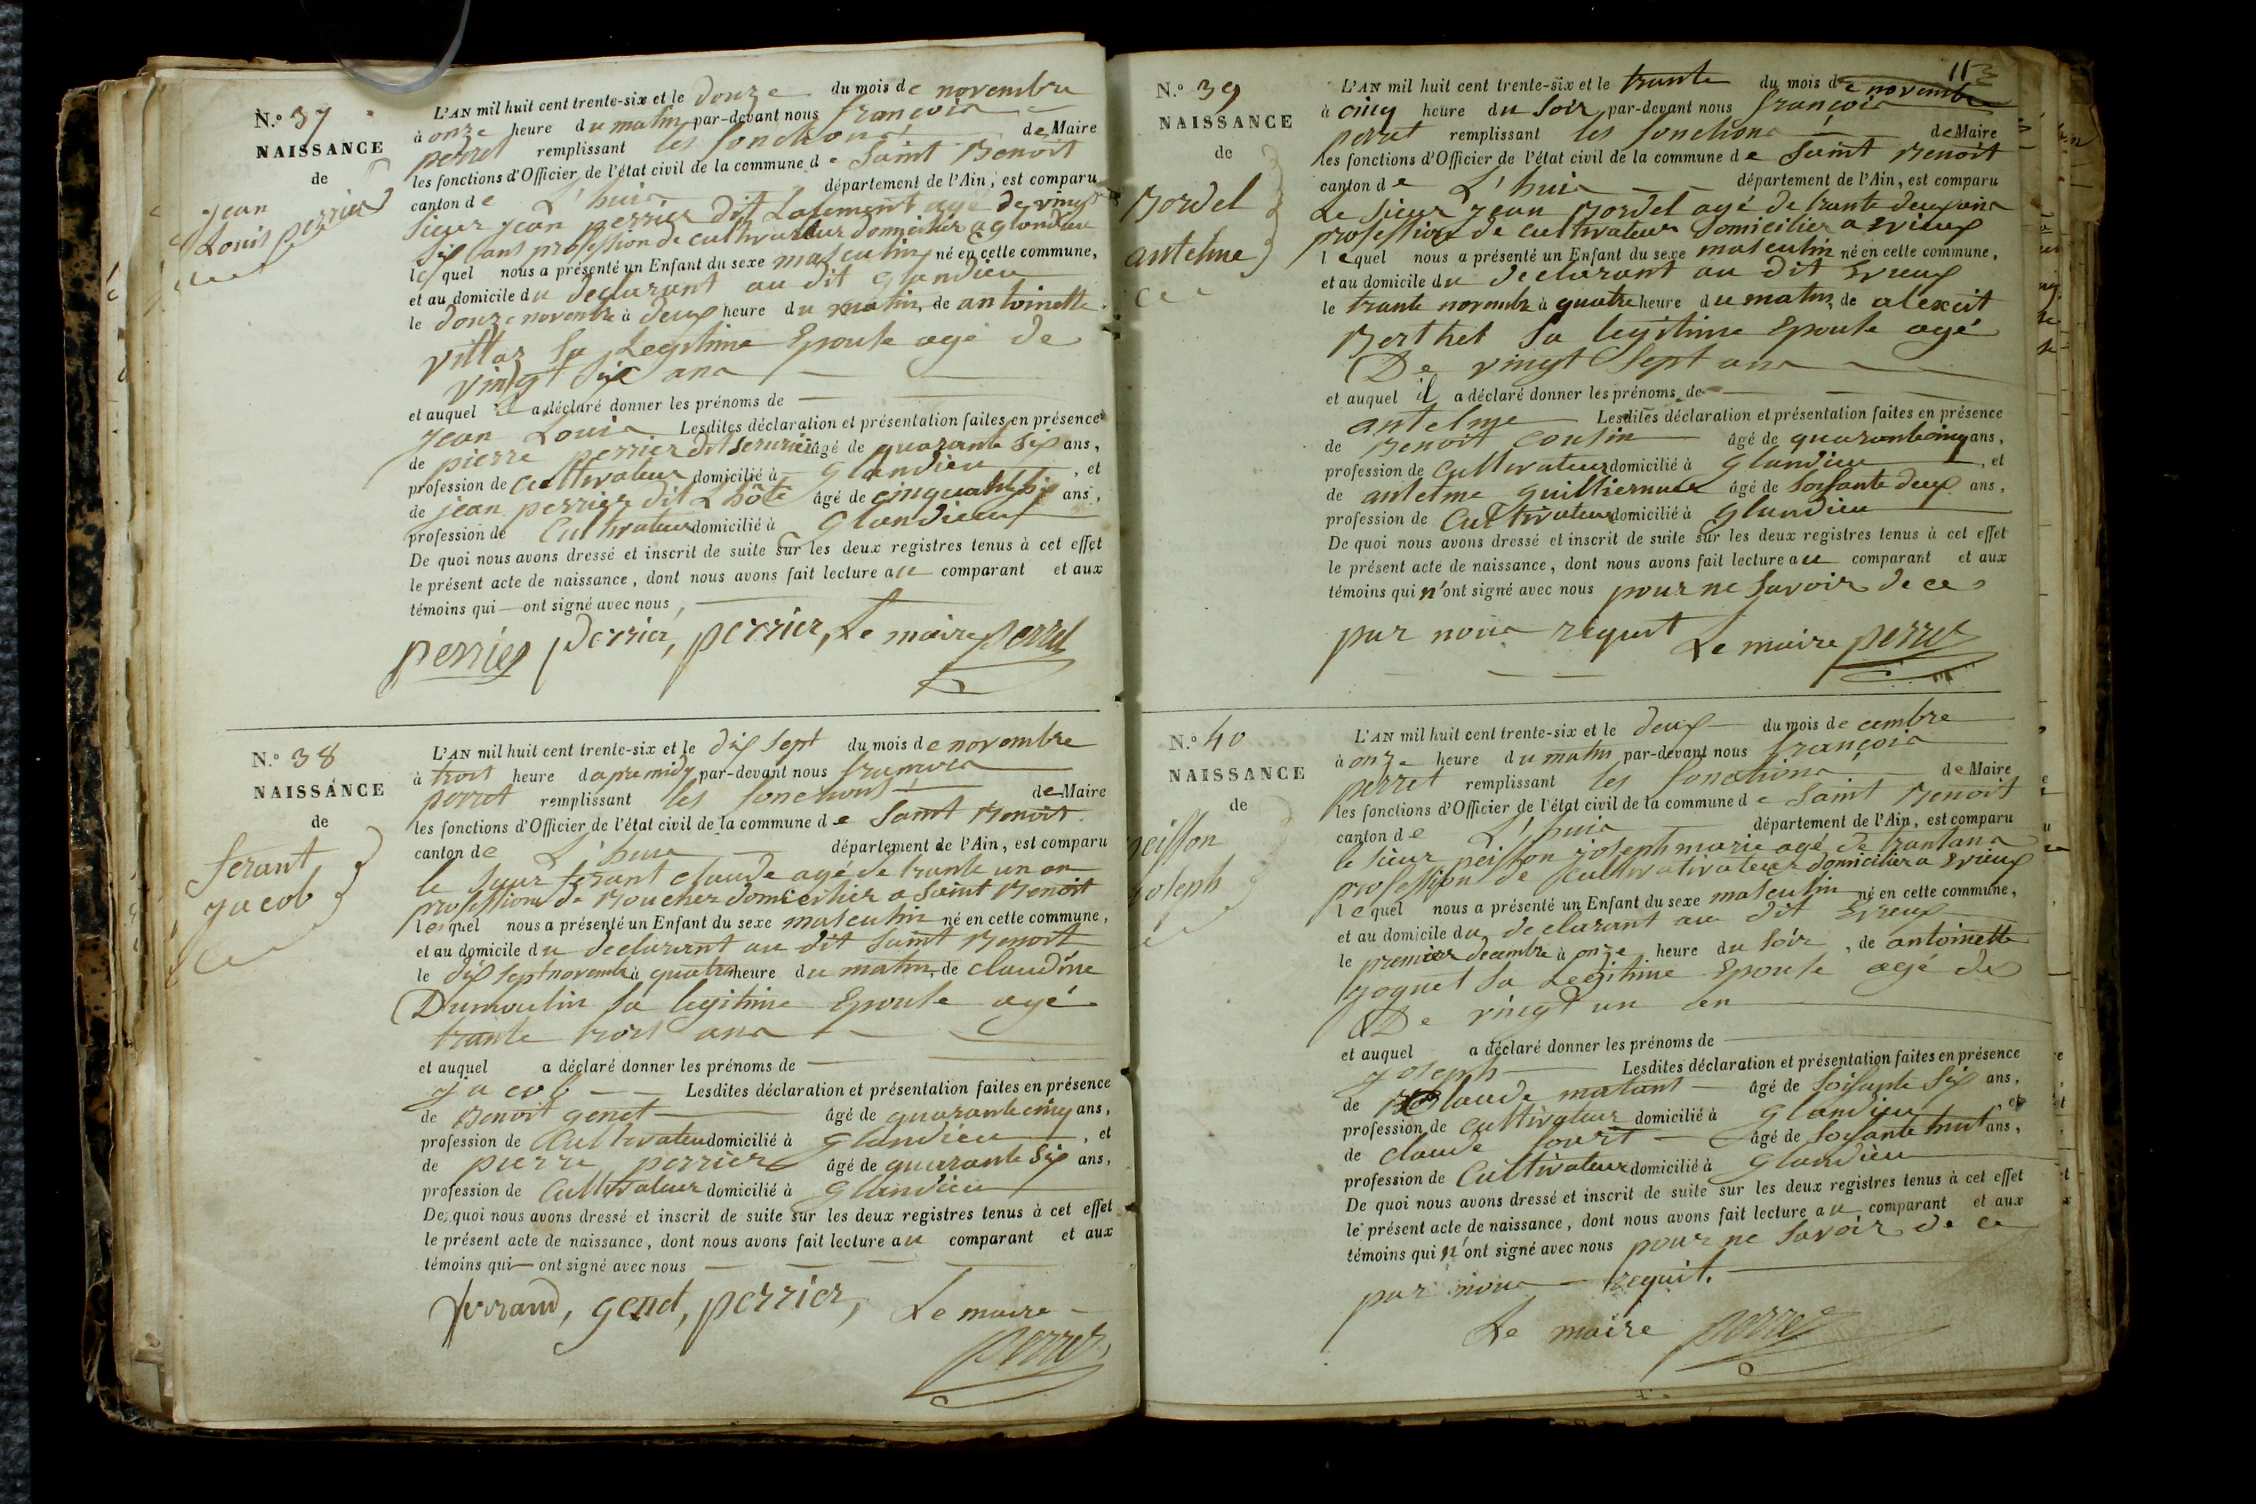 N.º 37
NAISSANCE
de
jean
Louis perrier
L'AN mil huit cent trente-six et le douze du mois de novembre
à onze heure du matin par-devant nous françois
perret remplissant les fonctions de Maire
les fonctions d'Officier de l'état civil de la commune de Saint Benoit
canton de L'huis département de l'Ain, est comparu
Sieur jean perrier dit Lajement agé de vingt
six ans profession de cultivateur domicilier a glandieu
lequel nous a présenté un Enfant du sexe masculin né en cette commune,
et au domicile du declarant au dit glandieu
le douze novembre à deux heure du matin, de antoinette
villar sa Legitime Epouse agé de
vingt six ans
et auquel il a déclaré donner les prénoms de
jean Louis Lesdites déclaration et présentation faites en présence
de pierre perrier dit serurier âgé de quarante six ans,
profession de Cultivateur domicilié à glandieu, et
de jean perrier dit L'hôte âgé de cinquante six ans,
profession de Cultivateur domicilié à glandieu
De quoi nous avons dressé et inscrit de suite sur les deux registres tenus à cet effet
le présent acte de naissance, dont nous avons fait lecture au comparant et aux
témoins qui — ont signé avec nous,
perrier perrier, perrier, Le maire perret
N.º 38
NAISSANCE
de
ferant
jacob
L'AN mil huit cent trente-six et le dix sept du mois de novembre
à trois heure d apremidy par-devant nous francois
perret remplissant les fonctions de Maire
les fonctions d'Officier de l'état civil de la commune de Saint Benoit
canton de L'huis département de l'Ain, est comparu
le Sieur ferant claude agé de trante un an
profession de Boucher domicilier a Saint Benoit
lequel nous a présenté un Enfant du sexe masculin né en cette commune,
et au domicile du declarant au dit Saint Benoit
le dix sept novembre à quatre heure du matin, de claudine
Dumoulin sa legitime Epouse agé
trante trois ans
et auquel a déclaré donner les prénoms de
jacob Lesdites déclaration et présentation faites en présence
de Benoit genet âgé de quarante cinq ans,
profession de Cultivateur domicilié à glandieu, et
de pierre perrier âgé de quarante six ans,
profession de Cultivateur domicilié à glandieu
De quoi nous avons dressé et inscrit de suite sur les deux registres tenus à cet effet
le présent acte de naissance, dont nous avons fait lecture au comparant et aux
témoins qui — ont signé avec nous
ferrand, genet, perrier, Le maire
perret
113
N.º 39
NAISSANCE
de
Bordel
antelme
L'AN mil huit cent trente-six et le trante du mois de novembre
à cinq heure du Soir par-devant nous françois
perret remplissant les fonctions de Maire
les fonctions d'Officier de l'état civil de la commune de Saint Benoit
canton de L'huis département de l'Ain, est comparu
Le Sieur jean Bordel agé de trante deux ans
profession de cultivateur domicilier a Evieux
lequel nous a présenté un Enfant du sexe masculin né en cette commune,
et au domicile du declarant au dit Evieux
le trante novembre à quatre heure du matin, de alexcit
Berthet sa legitime Epouse agé
De vingt Sept ans
et auquel il a déclaré donner les prénoms de
antelme Lesdites déclaration et présentation faites en présence
de Benoit Cousin âgé de quarante cinq ans,
profession de Cultivateur domicilié à glandieu, et
de antelme guilliermet âgé de soisante deux ans,
profession de Cultivateur domicilié à glandieu
De quoi nous avons dressé et inscrit de suite sur les deux registres tenus à cet effet
le présent acte de naissance, dont nous avons fait lecture au comparant et aux
témoins qui n'ont signé avec nous pour ne Savoir de ce
par nous requit Le maire perret
N.º 40
NAISSANCE
de
peisson
joseph
L'AN mil huit cent trente-six et le deux du mois de cembre
à onze heure du matin par-devant nous françois
perret remplissant les fonctions de Maire
les fonctions d'Officier de l'état civil de la commune de Saint Benoit
canton de L'huis département de l'Ain, est comparu
le Sieur peisson joseph marie agé de trant ans
profession de cultivativateur domicilier a Evieux
lequel nous a présenté un Enfant du sexe masculin né en cette commune,
et au domicile du declarant au dit Evieux
le premier decembre à onze heure du Soir, de antoinette
joguet sa Legitime Epouse agé de
De vingt un an
et auquel a déclaré donner les prénoms de
joseph Lesdites déclaration et présentation faites en présence
de Claude matant âgé de soisante six ans,
profession de Cultivateur domicilié à glandieu et
de claude âgé de soisante huit ans,
profession de Cultivateur domicilié à glandieu
De quoi nous avons dressé et inscrit de suite sur les deux registres tenus à cet effet
le présent acte de naissance, dont nous avons fait lecture au comparant et aux
témoins qui n'ont signé avec nous pour ne Savoir de ce
par nous requit.
Le maire perret